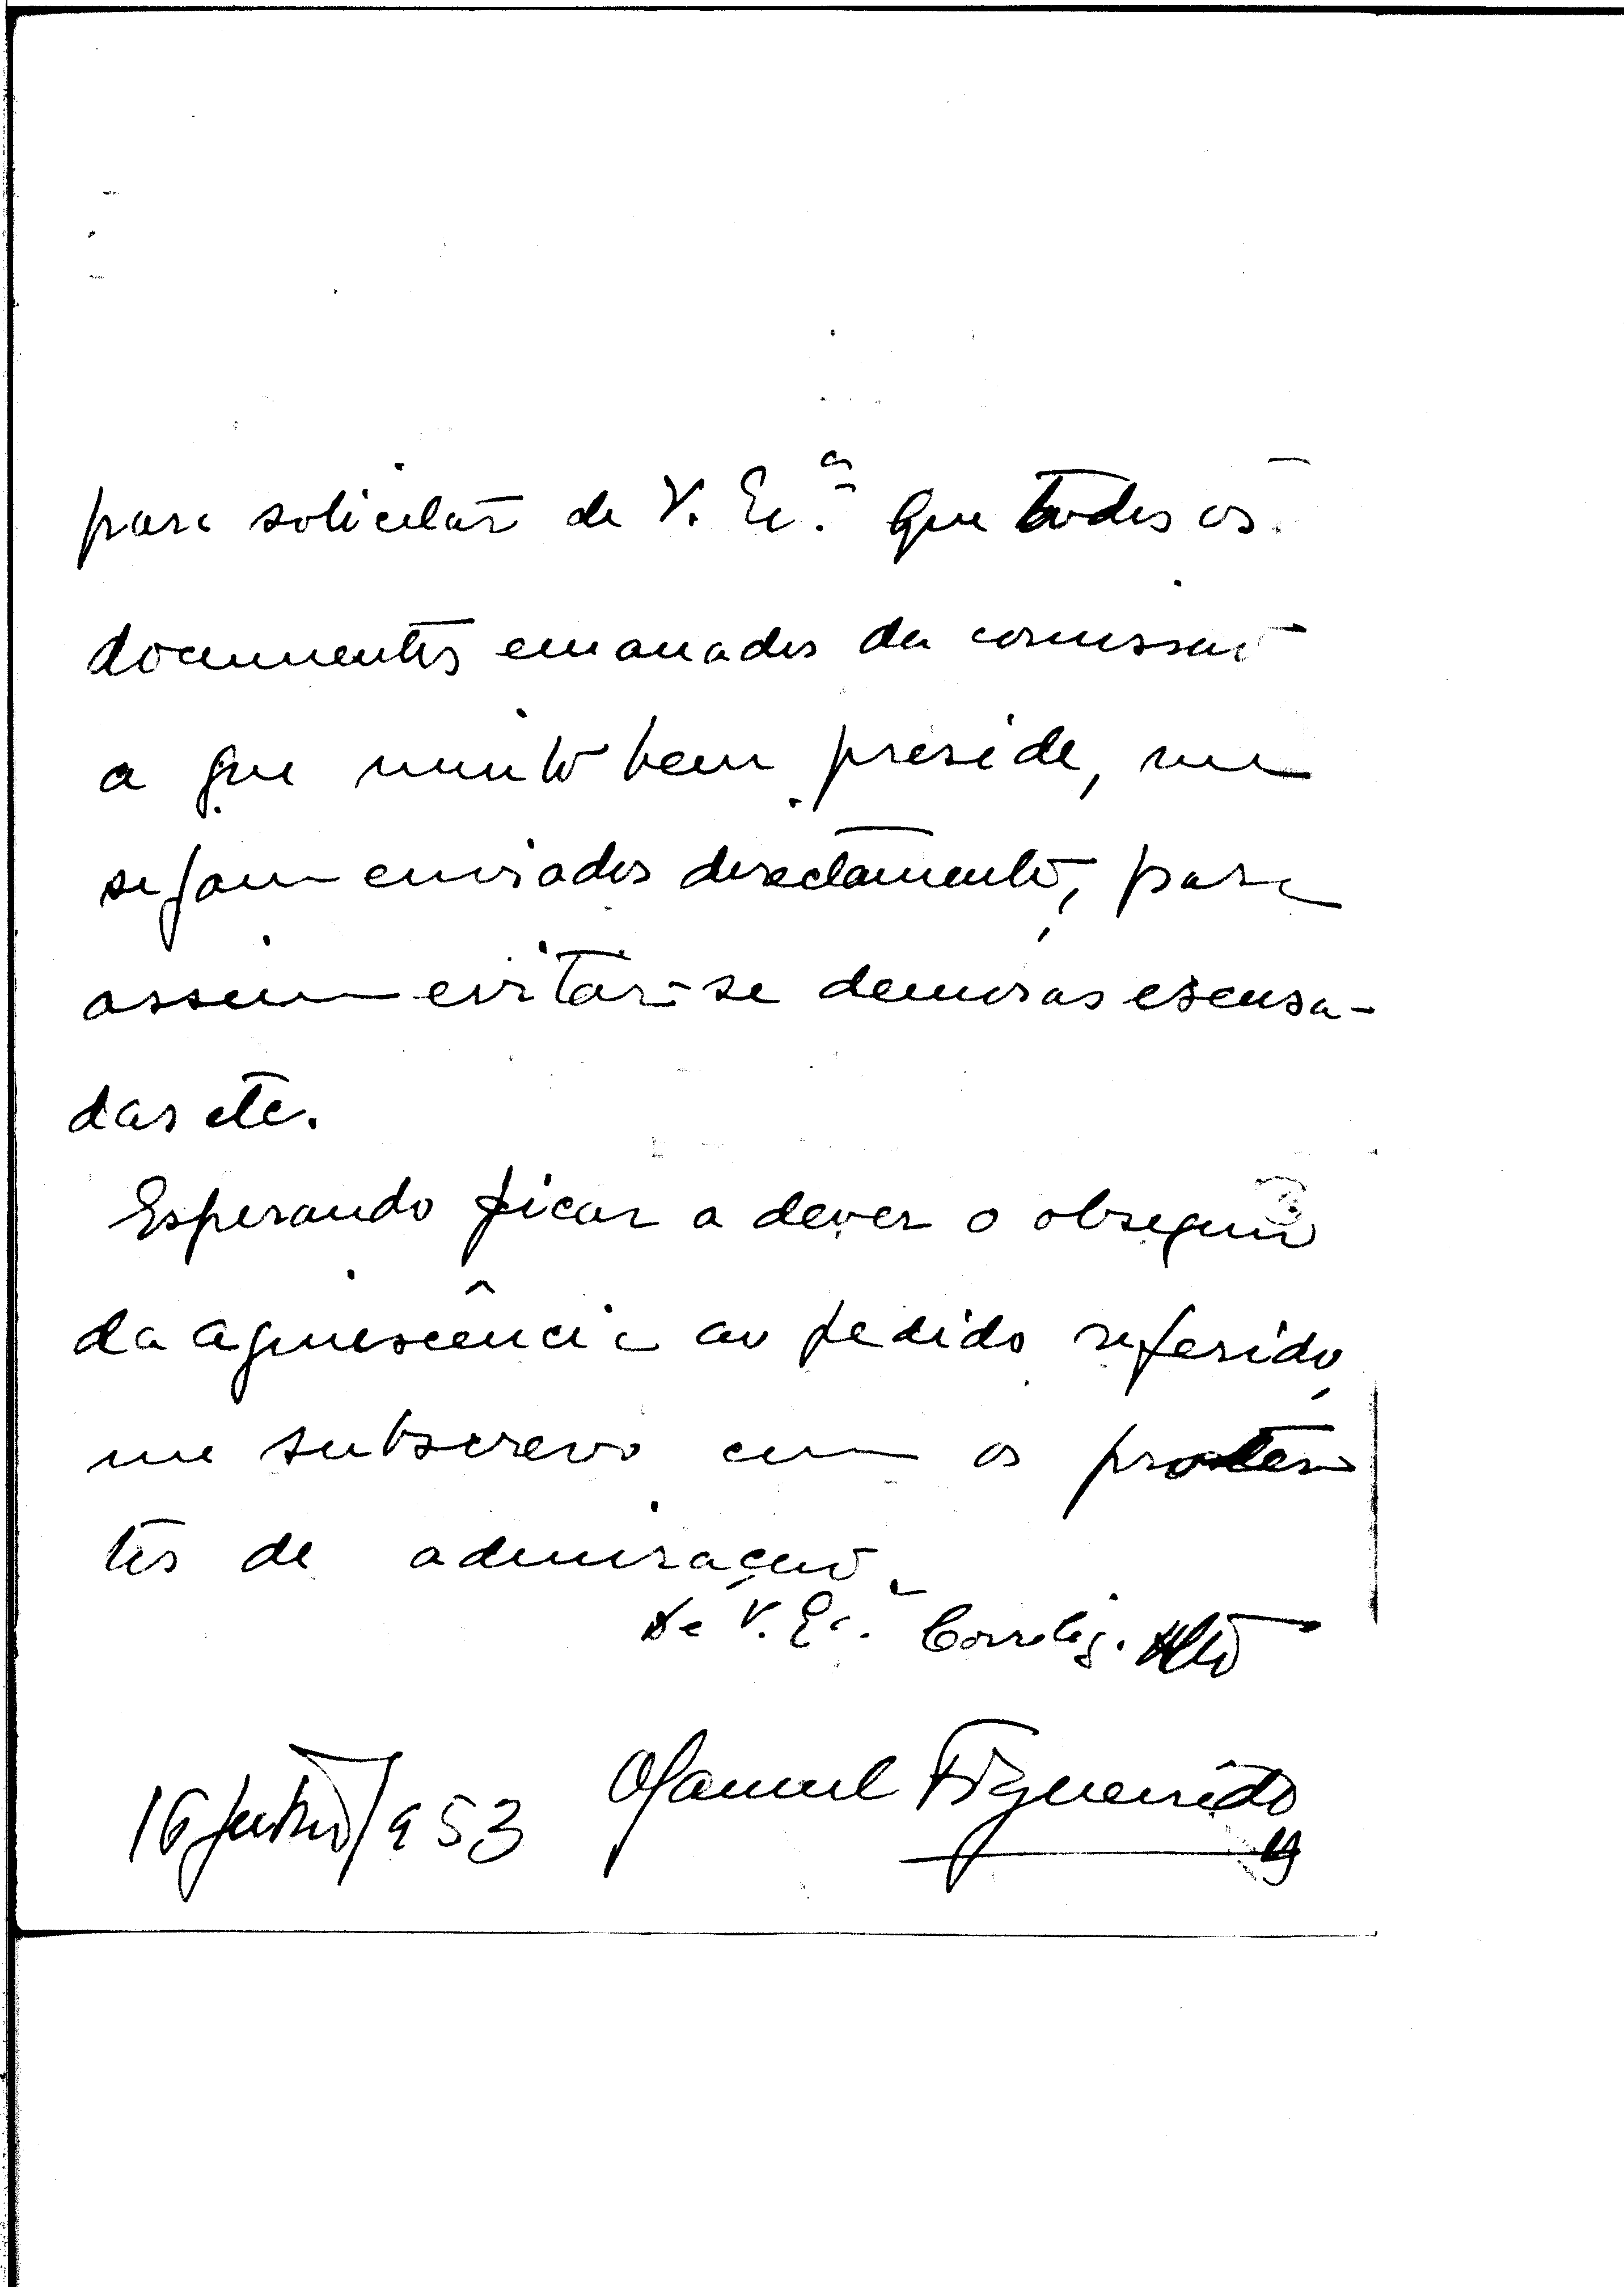 para solicitar de V. Ex.ª que todos os
documentos emanados da comissão
a que muito bem preside, me
sejam enviados directamente, para
assim evitar-se demoras escusa-
das etc.
Esperando ficar a dever o obsequio
da aquiescência ao pedido referido,
me subscrevo com os protes
tos de admiração.
De V. Ex.ª Correlig.
Manuel Figueirêdo
16 /953